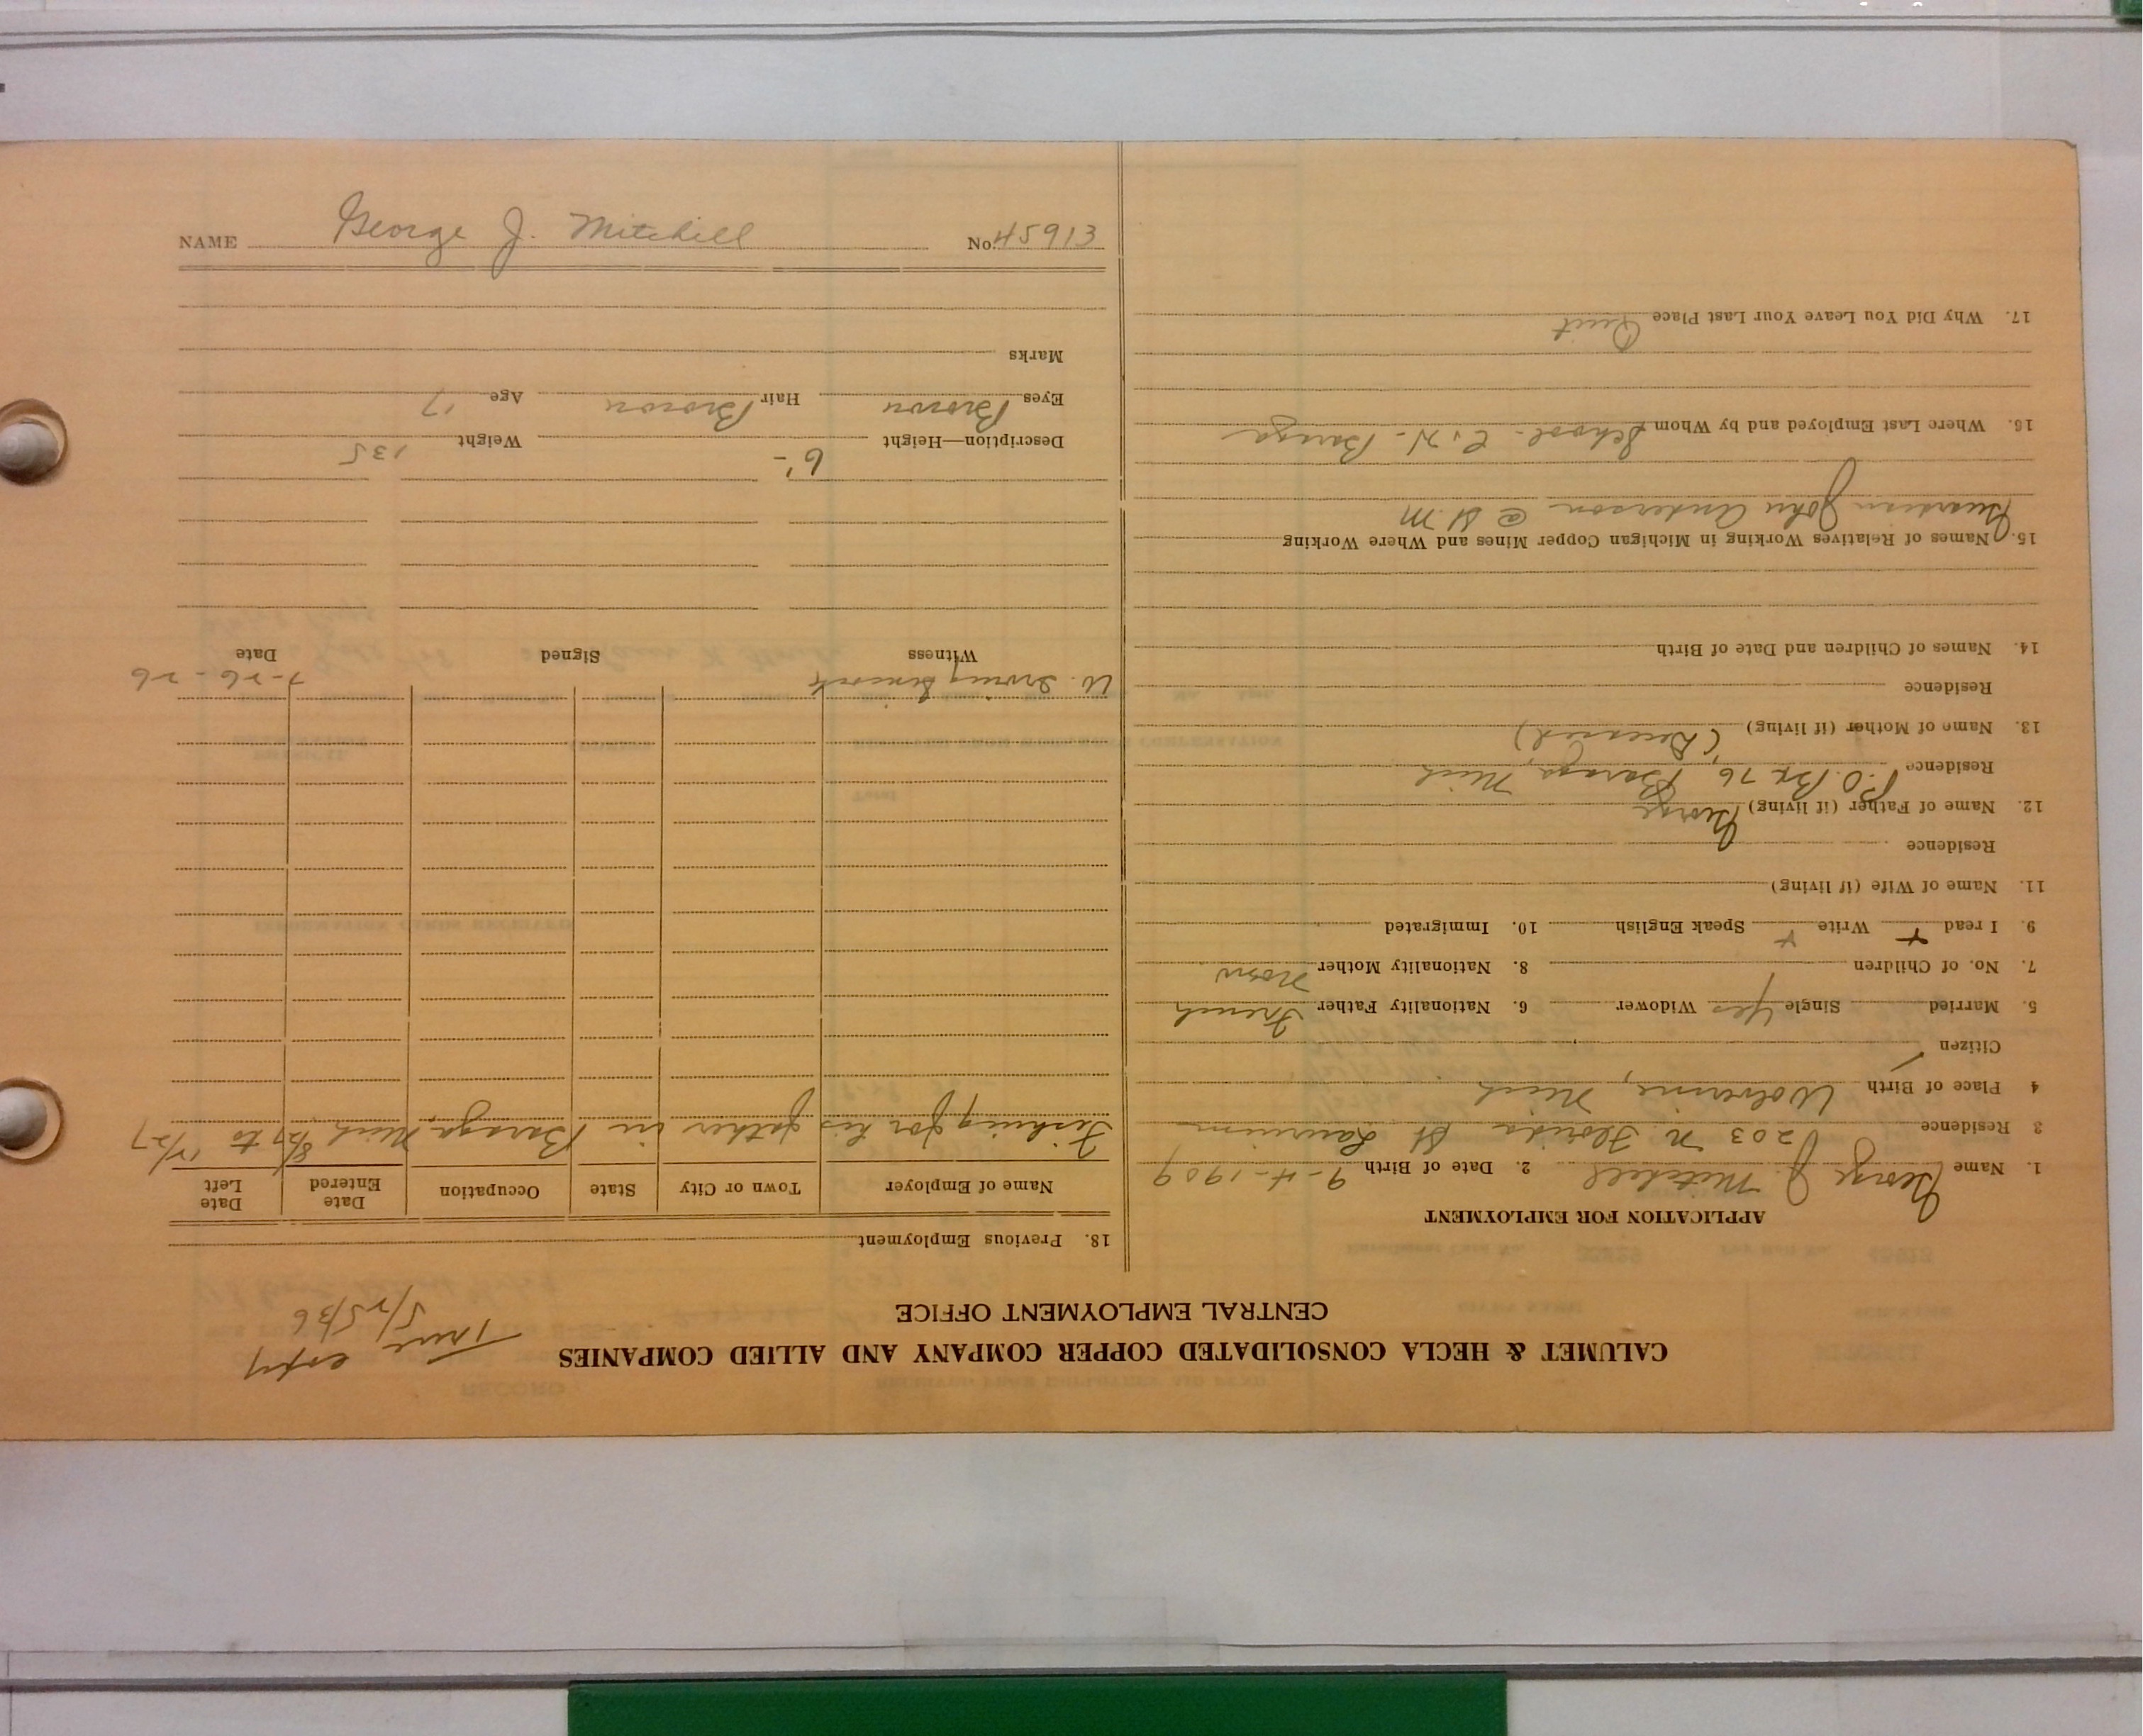 CALUMET & HECLA CONSOLIDATED COPPER COMPANY AND ALLIED COMPANIES
CENTRAL EMPLOYMENT OFFICE
True copy
5/25/36
APPLICATION FOR EMPLOYMENT
1. Name George J. Mitchell 2. Date of Birth 9-4-1909
3 Residence 203 N. Florida St Laurium
4 Place of Birth Wolverine, Mich
Citizen
5. Married Single Yes Widower 6. Nationality Father French
7. No. of Children 8. Nationality Mother Norw
9. I read + Write + Speak English 10. Immigrated
11. Name of Wife (if living)
Residence
12. Name of Father (if living) George
Residence P.O. Bx 76 Baraga, Mich
13. Name of Mother (if living) (Deceased)
Residence
14. Names of Children and Date of Birth
15. Names of Relatives Working in Michigan Copper Mines and Where Working
Guardian John Anderson @ St. M
16. Where Last Employed and by Whom School - Baraga
17. Why Did You Leave Your Last Place Quit
18. Previous Employment
Name of Employer Town or City State Occupation Date Entered Date Left
Fishing for his father in Baraga, Mich 8/27 to 11/27
W. Irving 7-26-26
Witness Signed Date
Description—Height 6'- Weight 135
Eyes Brown Hair Brown Age 17
Marks
NAME George J. Mitchell No. 45913